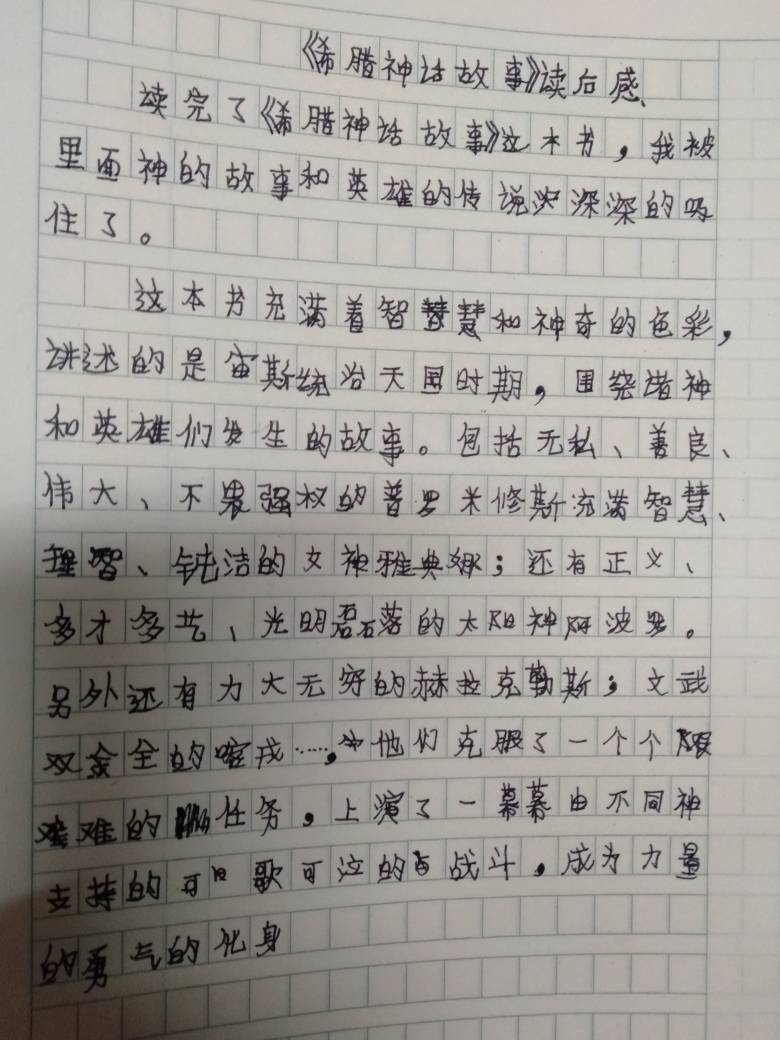 《希腊神话故事》读后感
读完了《希腊神话故事》这本书，我被
里面神的故事和英雄的传说深深的吸
住了。
这本书充满着智慧和神奇的色彩，
讲述的是宙斯统治天国时期，围绕诸神
和英雄们发生的故事。包括无私、善良、
伟大、不畏强权的普罗米修斯充满智慧、
理智、钝洁的女神雅典娜；还有正义、
多才多艺、光明磊落的太阳神阿波罗。
另外还有力大无穷的赫拉克勒斯；文武
双全的喀戎……，他们克服了一个个
难的任务，上演了一幕幕由不同神
支持的可歌可泣的战斗，成为力量
的勇气的化身